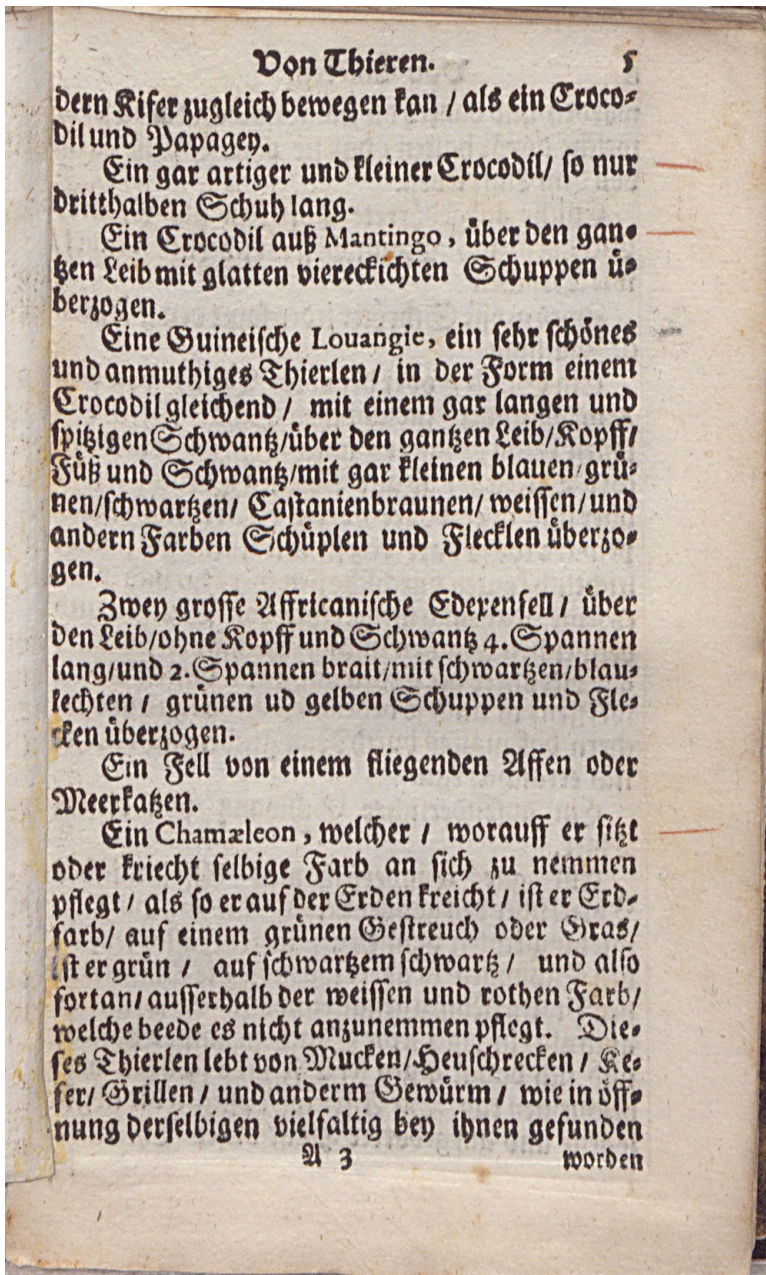 Von Thieren. 5
dern Kifer zugleich bewegen kan / als ein Croco-
dil und Papagey.
Ein gar artiger und kleiner Crocodil / so nur
dritthalben Schuh lang.
Ein Crocodil auß Mantingo, über den gan-
tzen Leib mit glatten viereckichten Schuppen ü-
berzogen.
Eine Guineische Louangie, ein sehr schönes
und anmuthiges Thierlen / in der Form einem
Crocodil gleichend / mit einem gar langen und
spitzigen Schwantz / über den gantzen Leib / Kopff /
Füß und Schwantz / mit gar kleinen blauen / grü-
nen / schwartzen / Castanienbraunen / weissen / und
andern Farben Schüplen und Flecklen überzo-
gen.
Zwey grosse Affricanische Edexenfell / über
den Leib / ohne Kopff und Schwantz 4. Spannen
lang / und 2. Spannen brait / mit schwartzen / blau-
lechten / grünen ud gelben Schuppen und Fle-
cken überzogen.
Ein Fell von einem fliegenden Affen oder
Meerkatzen.
Ein Chamæleon, welcher / worauff er sitzt
oder kriecht selbige Farb an sich zu nemmen
pflegt / als so er auf der Erden kreicht / ist er Erd-
farb / auf einem grünen Gestreuch oder Gras /
ist er grün / auf schwartzem schwartz / und also
fortan / ausserhalb der weissen und rothen Farb /
welche beede es nicht anzunemmen pflegt. Die-
ses Thierlen lebt von Mucken / Heuschrecken / Ke-
fer / Grillen / und anderm Gewürm / wie in öff-
nung derselbigen vielfaltig bey ihnen gefunden
A 3 worden